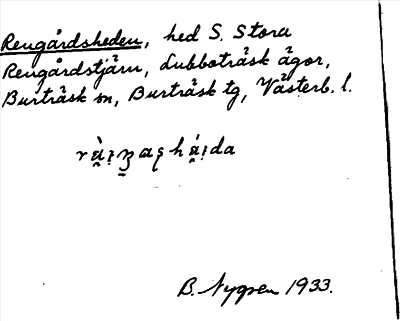 Rengårdsheden, hed S. Stora
Rengårdstjärn, Lubboträsk ägor,
Burträsk sn, Burträsk tg, Västerb. l.
B. Nygren 1933.